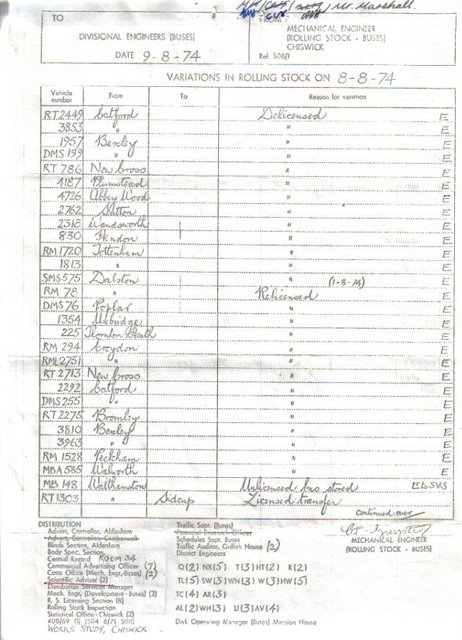 Mr. Marshall
TO
DIVISIONAL ENGINEERS (BUSES)
DATE 9-8-74
FROM
MECHANICAL ENGINEER
(ROLLING STOCK - BUSES)
CHISWICK
Ref. 508/1
VARIATIONS IN ROLLING STOCK ON 8-8-74
Vehicle number From To Reason for variation
RT 2449 Catford Delicensed E
3853 " " E
1957 Bexley " E
DMS 199 " " E
RT 786 New Cross " E
4187 Plumstead " E
4726 Abbey Wood " E
2762 Sutton " E
2318 Wandsworth " E
830 Hendon " E
RM 1720 Tottenham " E
1813 " " E
SMS 575 Dalston " (1-8-74) E
RM 78 " Relicensed E
DMS 76 Poplar " E
1354 Uxbridge " E
225 Thornton Heath " E
RM 294 Croydon " E
RML 2751 " " E
RT 2713 New Cross " E
2292 Catford " E
DMS 255 " " E
RT 2275 Bromley " E
3810 Bexley " E
3963 " " E
RM 1528 Peckham " E
MBA 585 Walworth " E
MB 148 Walthamstow Unlicensed bus stored E to SVS
RT 1303 " Sidcup Licensed transfer
continued over
DISTRIBUTION
Advert. Controller, Aldenham
Advert. Controller, Camberwell
Blinds Section, Aldenham
Body Spec. Section,
Central Record ROOM 34
Commercial Advertising Officer (7)
Costs Office (Mech. Engr. Buses) (2)
Scientific Adviser (2)
Distribution Services Manager
Mech. Engr. (Development - Buses) (2)
R. S. Licensing Section (6)
Rolling Stock Inspection
Statistical Office - Chiswick (2)
WORKS STUDY, CHISWICK.
Traffic Supt. (Buses)
Schedules Supt. Buses
Traffic Auditor, Griffith House (2)
District Engineers
Q(2) NK(5) T(3) HT(2) R(2)
TL(5) SW(3) VN(3) W(3) HW(5)
TC(4) AR(3)
AL(2) WH(3) U(3) AV(4)
Divl. Operating Manager (Buses) Mansion House
MECHANICAL ENGINEER
(ROLLING STOCK - BUSES)